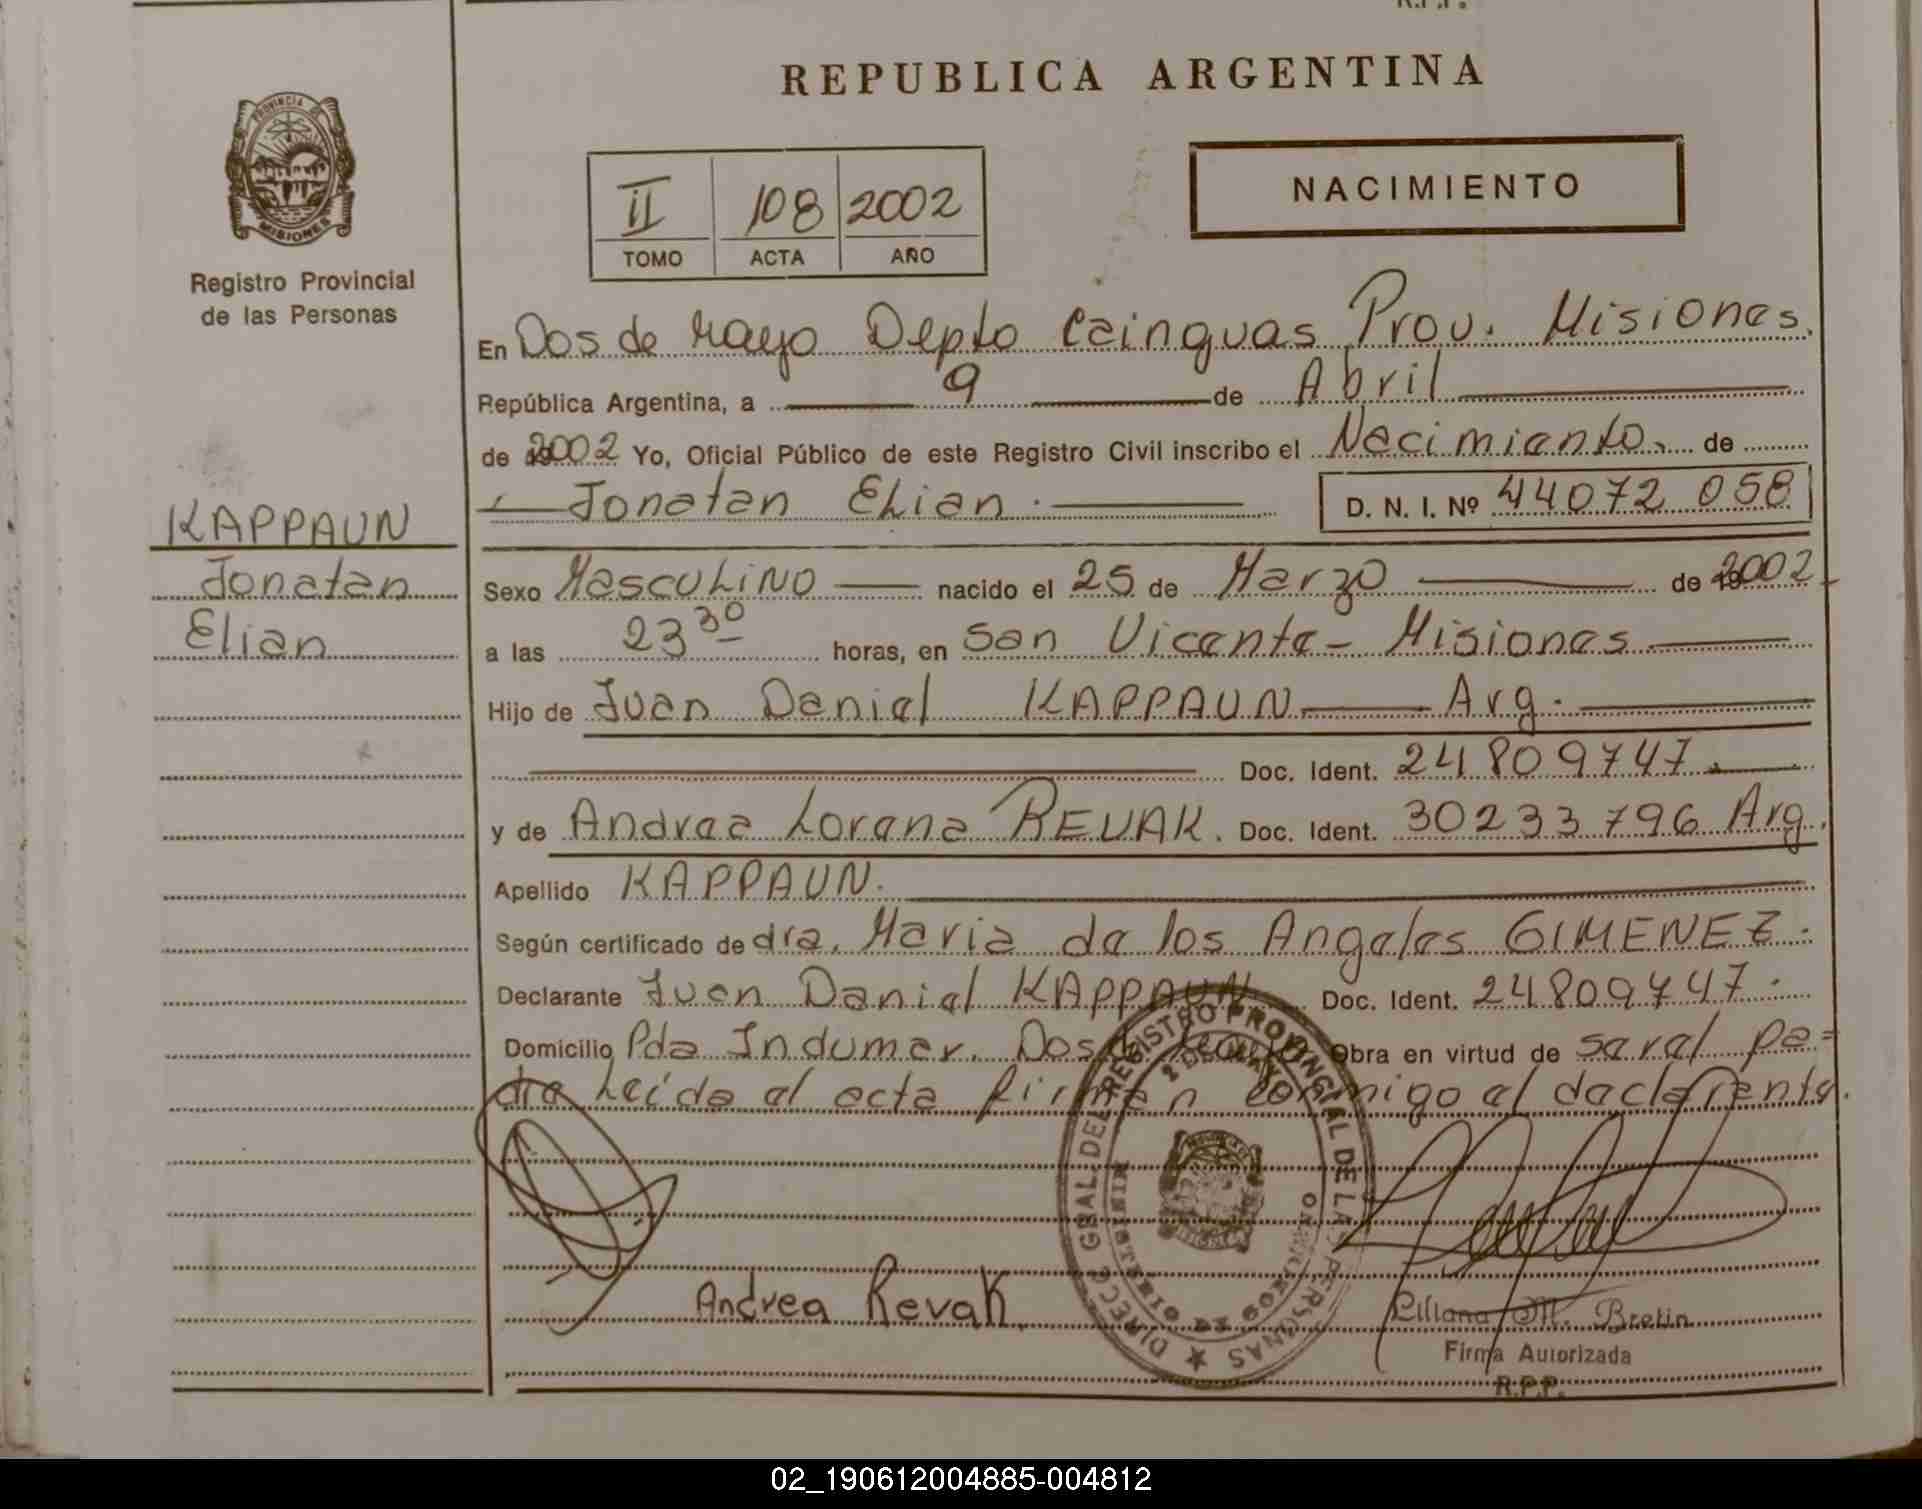 R.P.P.
REPUBLICA ARGENTINA
PROVINCIA DE
MISIONES
Registro Provincial
de las Personas
II 108 2002
TOMO ACTA AÑO
NACIMIENTO
En Dos de Mayo Depto Cainguas Prov. Misiones.
República Argentina, a 9 de Abril
de 2002 Yo, Oficial Público de este Registro Civil inscribo el Nacimiento de
Jonatan Elian. D. N. I. Nº 44072 058
KAPPAUN
Jonatan
Elian
Sexo Masculino nacido el 25 de Marzo de 2002
a las 23 30 horas, en San Vicente - Misiones
Hijo de Juan Daniel KAPPAUN Arg.
Doc. Ident. 24809747
y de Andrea Lorena REVAK. Doc. Ident. 30233796 Arg.
Apellido KAPPAUN.
Según certificado de dra. Maria de los Angeles GIMENEZ.
Declarante Juan Daniel KAPPAUN Doc. Ident. 24809747.
Domicilio Pda Indumar. Dos de Mayo Obra en virtud de ser el pa=
dre Leída el acta firman conmigo el declarente.
DIRECC GRAL DEL REGISTRO PROVINCIAL DE LAS PERSONAS
2 DE MAYO
MINISTERIO DE GOBIERNO
Andrea Revak
Liliana M. Bretin
Firma Autorizada
R.P.P.
02_190612004885-004812